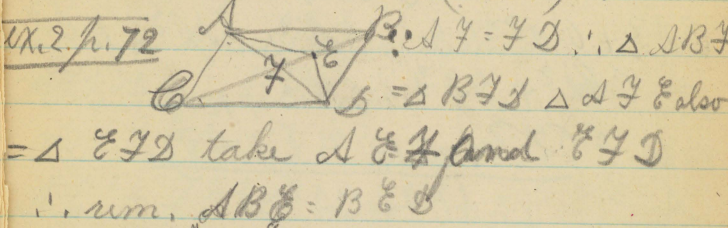 Ex. 2. p. 72
A B E F C D
∵ A F = F D ∴ △ ABF
= △ BFD △ AFE also
= △ EFD take A E F and EFD
∴ rem. ABE = BED